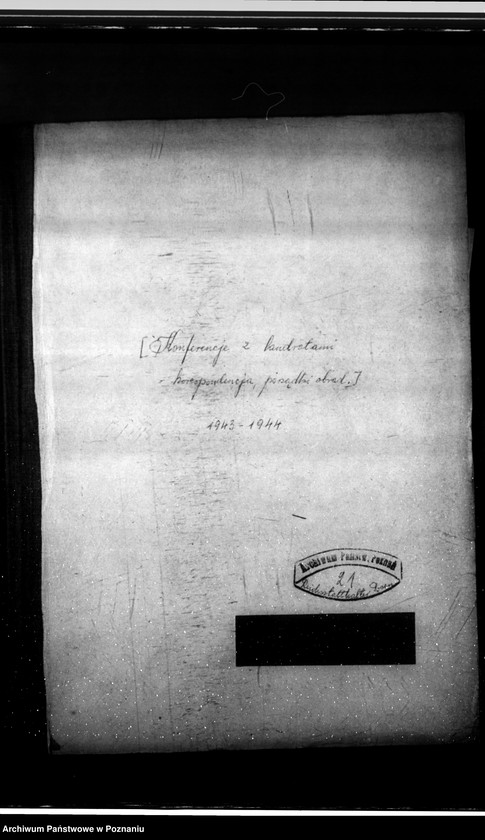 [Konferencje z landratami
- korespondencja, porządki obrad.]
1943-1944
Archiwum Państw. Poznań
21
Reichsstatthalter Posen
Archiwum Państwowe w Poznaniu